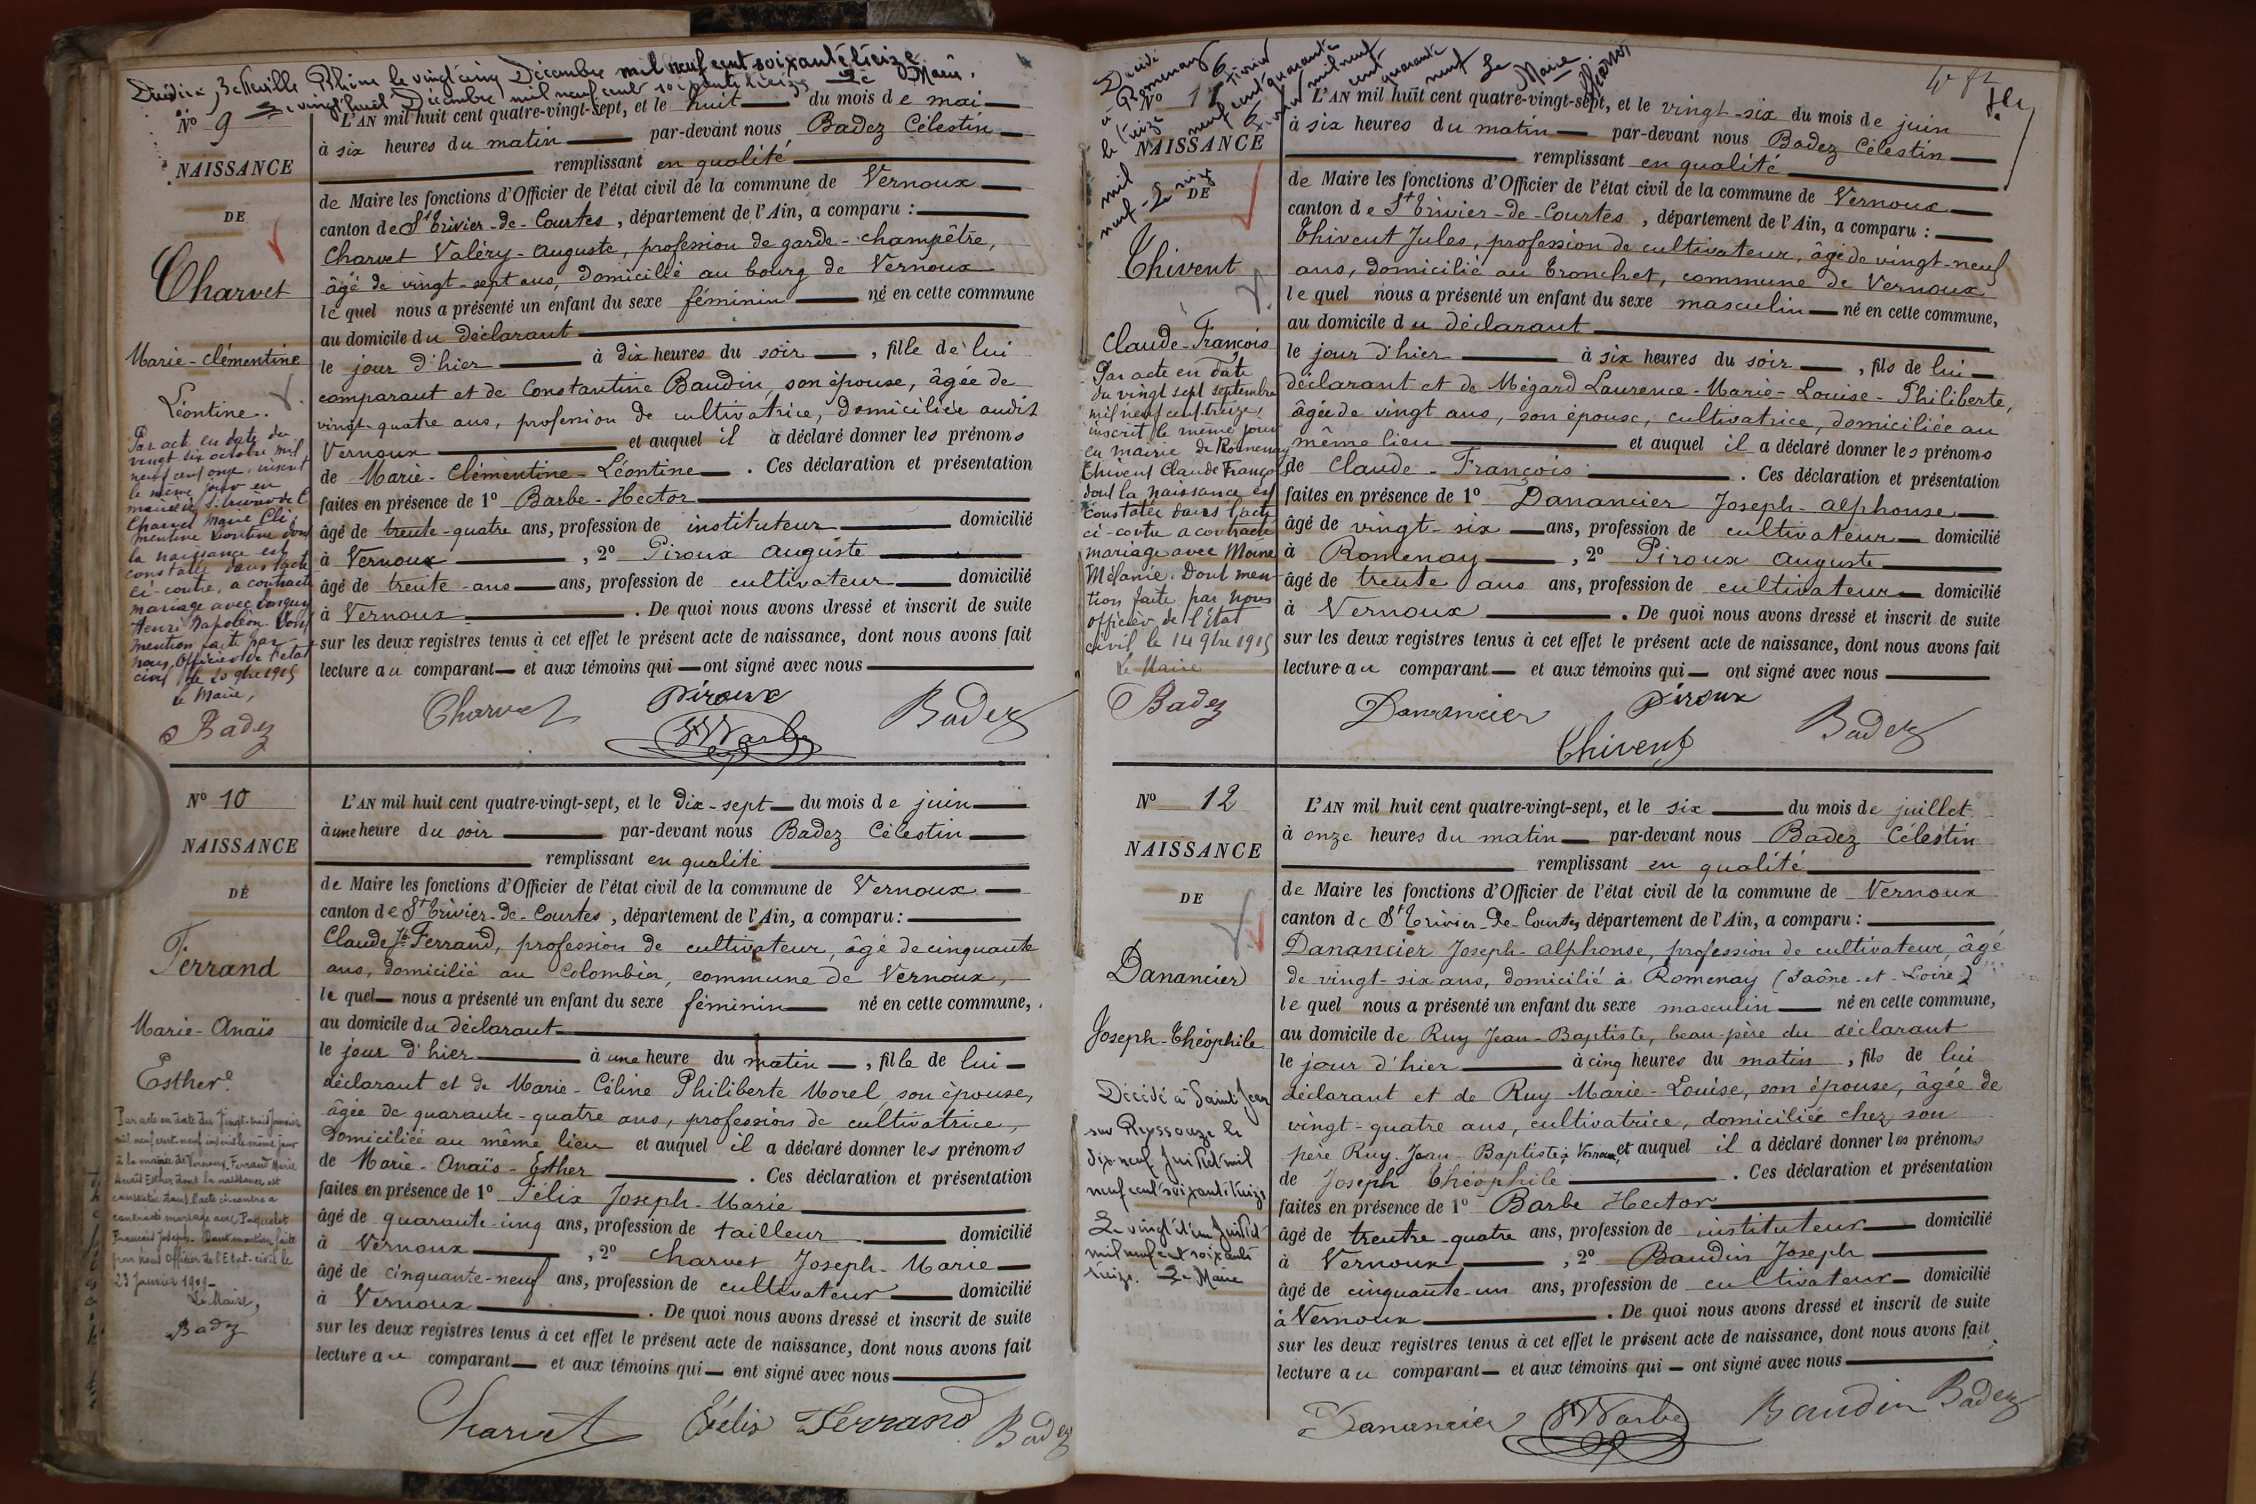 Décédée à Belleville Rhône le vingt cinq Décembre mil neuf cent soixante treize
Le vingt huit Décembre mil neuf cent soixante treize Le Maire.
No 9
NAISSANCE
DE
Charvet
Marie-Clémentine
Léontine.
Par acte en date du
vingt six octobre mil
neuf cent onze, inscrit
le même jour en
mairie de St Trivier de C
Charvet Marie Clé-
mentine Léontine dont
la naissance est
constatée dans l'acte
ci-contre, a contracté
mariage avec
Henri Napoléon. Dont
mention faite par
nous, Officier de l'état
civil le 20 9bre 1915
Le Maire,
Badez
L'AN mil huit cent quatre-vingt-sept, et le huit du mois de mai
à six heures du matin par-devant nous Badez Célestin
remplissant en qualité
de Maire les fonctions d'Officier de l'état civil de la commune de Vernoux
canton de St Trivier-de-Courtes, département de l'Ain, a comparu :
Charvet Valéry-Auguste, profession de garde-champêtre,
âgé de vingt-sept ans, domicilié au bourg de Vernoux
lequel nous a présenté un enfant du sexe féminin né en cette commune
au domicile du déclarant
le jour d'hier à dix heures du soir, fille de lui
comparant et de Constantine Baudin, son épouse, âgée de
vingt-quatre ans, profession de cultivatrice, domiciliée audit
Vernoux et auquel il a déclaré donner les prénoms
de Marie-Clémentine-Léontine. Ces déclaration et présentation
faites en présence de 1º Barbe-Hector
âgé de trente-quatre ans, profession de instituteur domicilié
à Vernoux, 2º Piroux Auguste
âgé de trente-ans ans, profession de cultivateur domicilié
à Vernoux. De quoi nous avons dressé et inscrit de suite
sur les deux registres tenus à cet effet le présent acte de naissance, dont nous avons fait
lecture au comparant et aux témoins qui ont signé avec nous
Charvet Piroux Badez
Barbe
No 10
NAISSANCE
DE
Ferrand
Marie-Anaïs
Esther
Par acte en date du Vingt-trois Janvier
mil neuf cent-neuf inscrit le même jour
à la mairie de Vernoux, Ferrand Marie
Anaïs Esther dont la naissance est
constatée dans l'acte ci-contre a
contracté mariage avec Paquelet
François Joseph. Dont mention faite
par Nous Officier de l'Etat-civil le
23 Janvier 1909
Le Maire,
Badez
L'AN mil huit cent quatre-vingt-sept, et le dix-sept du mois de juin
à une heure du soir par-devant nous Badez Célestin
remplissant en qualité
de Maire les fonctions d'Officier de l'état civil de la commune de Vernoux
canton de St Trivier-de-Courtes, département de l'Ain, a comparu :
Claude Jh Ferrand, profession de cultivateur, âgé de cinquante
ans, domicilié au Colombier, commune de Vernoux,
lequel nous a présenté un enfant du sexe féminin né en cette commune,
au domicile du déclarant
le jour d'hier à une heure du matin, fille de lui
déclarant et de Marie-Céline Philiberte Morel, son épouse,
âgée de quarante-quatre ans, profession de cultivatrice,
domiciliée au même lieu et auquel il a déclaré donner les prénoms
de Marie-Anaïs-Esther. Ces déclaration et présentation
faites en présence de 1º Félix Joseph-Marie
âgé de quarante-cinq ans, profession de tailleur domicilié
à Vernoux, 2º Charvet Joseph-Marie
âgé de cinquante-neuf ans, profession de cultivateur domicilié
à Vernoux. De quoi nous avons dressé et inscrit de suite
sur les deux registres tenus à cet effet le présent acte de naissance, dont nous avons fait
lecture au comparant et aux témoins qui ont signé avec nous
Charvet Félix Ferrand Badez
Décédé
à Romenay
le treize Février
mil neuf cent quarante
neuf
Le Maire
No 11
NAISSANCE
DE
Thivent
Claude-François
Par acte en date
du vingt sept septembre
mil neuf cent treize,
inscrit le même jour
en mairie de Romenay
Thivent Claude François
dont la naissance est
constatée dans l'acte
ci-contre a contracté
mariage avec Moine
Mélanie. Dont men-
tion faite par nous
officier de l'état
civil le 14 9bre 1915
Le Maire
Badez
L'AN mil huit cent quatre-vingt-sept, et le vingt-six du mois de juin
à six heures du matin par-devant nous Badez Célestin
remplissant en qualité
de Maire les fonctions d'Officier de l'état civil de la commune de Vernoux
canton de St Trivier-de-Courtes, département de l'Ain, a comparu :
Thivent Jules, profession de cultivateur, âgé de vingt-neuf
ans, domicilié au Tronchet, commune de Vernoux
lequel nous a présenté un enfant du sexe masculin né en cette commune,
au domicile du déclarant
le jour d'hier à six heures du soir, fils de lui
déclarant et de Mégard Laurence-Marie-Louise-Philiberte,
âgée de vingt ans, son épouse, cultivatrice, domiciliée au
même lieu et auquel il a déclaré donner les prénoms
de Claude-François. Ces déclaration et présentation
faites en présence de 1º Danancier Joseph-Alphonse
âgé de vingt-six ans, profession de cultivateur domicilié
à Romenay, 2º Piroux Auguste
âgé de trente ans ans, profession de cultivateur domicilié
à Vernoux. De quoi nous avons dressé et inscrit de suite
sur les deux registres tenus à cet effet le présent acte de naissance, dont nous avons fait
lecture au comparant et aux témoins qui ont signé avec nous
Danancier Piroux Badez
Thivent
No 12
NAISSANCE
DE
Danancier
Joseph-Théophile
Décédé à Saint Jean
sur Reyssouze le
dix-neuf Juillet mil
neuf cent soixante treize
Le vingt et un Juillet
mil neuf cent soixante
treize. Le Maire
L'AN mil huit cent quatre-vingt-sept, et le six du mois de juillet
à onze heures du matin par-devant nous Badez Célestin
remplissant en qualité
de Maire les fonctions d'Officier de l'état civil de la commune de Vernoux
canton de St Trivier-de-Courtes, département de l'Ain, a comparu :
Danancier Joseph-Alphonse, profession de cultivateur, âgé
de vingt-six ans, domicilié à Romenay (Saône-et-Loire)
lequel nous a présenté un enfant du sexe masculin né en cette commune,
au domicile de Ruy Jean-Baptiste, beau-père du déclarant
le jour d'hier à cinq heures du matin, fils de lui
déclarant et de Ruy Marie-Louise, son épouse, âgée de
vingt-quatre ans, cultivatrice, domiciliée chez son
père Ruy Jean-Baptiste, à Vernoux, et auquel il a déclaré donner les prénoms
de Joseph Théophile. Ces déclaration et présentation
faites en présence de 1º Barbe Hector
âgé de trentre-quatre ans, profession de instituteur domicilié
à Vernoux, 2º Baudin Joseph
âgé de cinquante-un ans, profession de cultivateur domicilié
à Vernoux. De quoi nous avons dressé et inscrit de suite
sur les deux registres tenus à cet effet le présent acte de naissance, dont nous avons fait
lecture au comparant et aux témoins qui ont signé avec nous
Danancier Barbe Baudin Badez